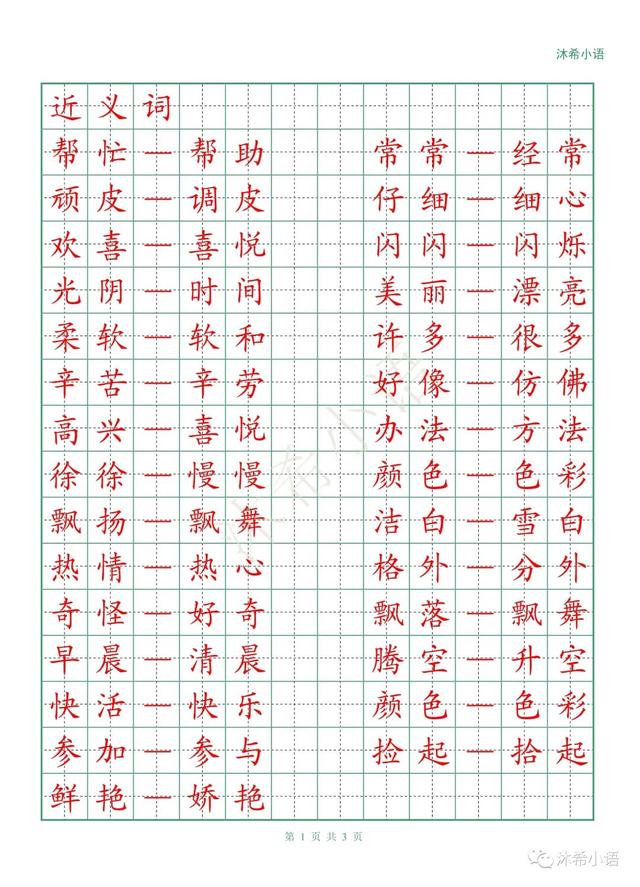 沐希小语
近义词
帮忙—帮助 常常—经常
顽皮—调皮 仔细—细心
欢喜—喜悦 闪闪—闪烁
光阴—时间 美丽—漂亮
柔软—软和 许多—很多
辛苦—辛劳 好像—仿佛
高兴—喜悦 办法—方法
徐徐—慢慢 颜色—色彩
飘扬—飘舞 洁白—雪白
热情—热心 格外—分外
奇怪—好奇 飘落—飘舞
早晨—清晨 腾空—升空
快活—快乐 颜色—色彩
参加—参与 捡起—拾起
鲜艳—娇艳
沐希小语
第 1 页 共 3 页
沐希小语